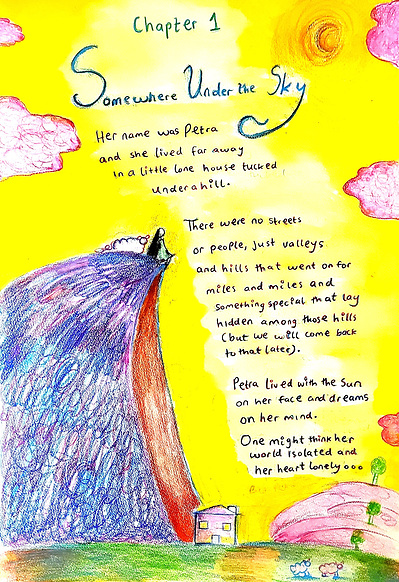 Chapter 1
Somewhere Under the Sky
Her name was Petra
and she lived far away
in a little lone house tucked
under a hill.
There were no streets
or people, just valleys
and hills that went on for
miles and miles and
something special that lay
hidden among those hills
(but we will come back
to that later).
Petra lived with the Sun
on her face and dreams
on her mind.
One might think her
world isolated and
her heart lonely ooo